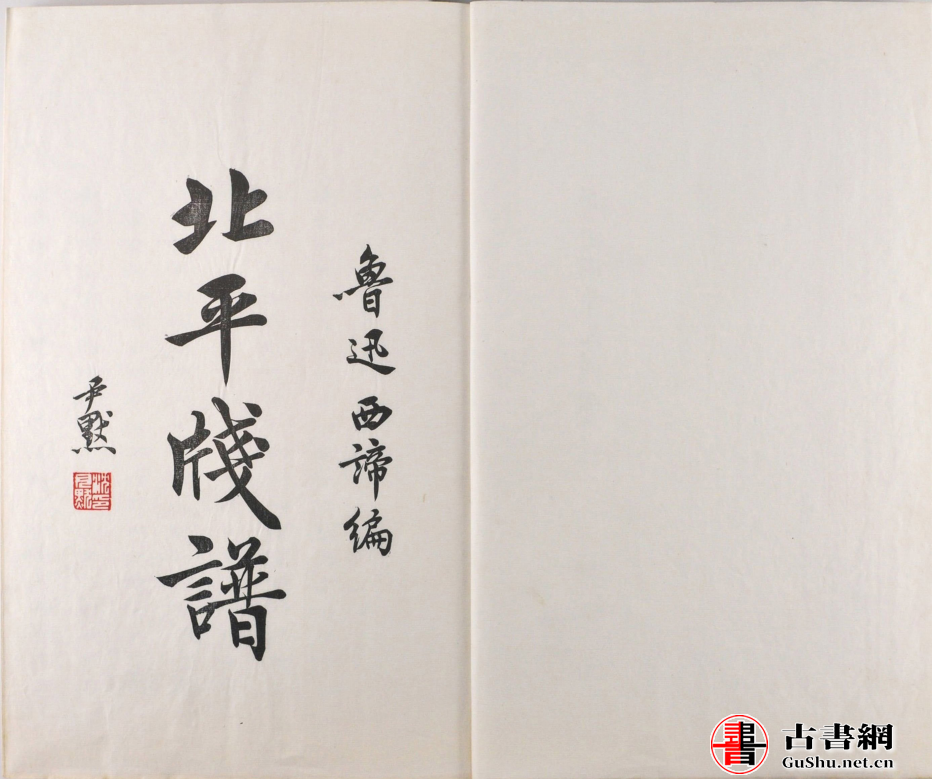 魯迅西諦編
北平牋譜
尹默
古書網
GuShu.net.cn